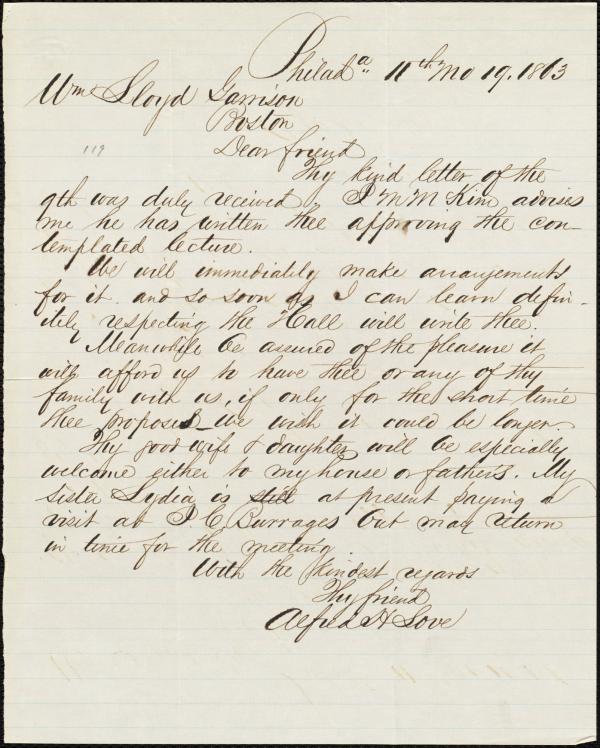 Philada. 11th Mo 19. 1863
Wm Lloyd Garrison
Boston
119
Dear friend
Thy kind letter of the
9th was duly received. J M M Kim advises
me he has written thee approving the con-
templated lecture.
We will immediately make arrangements
for it. and so soon as I can learn defin-
itely respecting the Hall will write thee.
Meanwhile be assured of the pleasure it
will afford us to have thee or any of thy
family with us, if only for the short time
thee proposes - we wish it could be longer.
Thy good wife & daughter will be especially
welcome either to my house or father's. My
sister Lydia is still at present paying a
visit at J. C. Burrages but may return
in time for the meeting
With the kindest regards
Thy friend
Alfred H Love